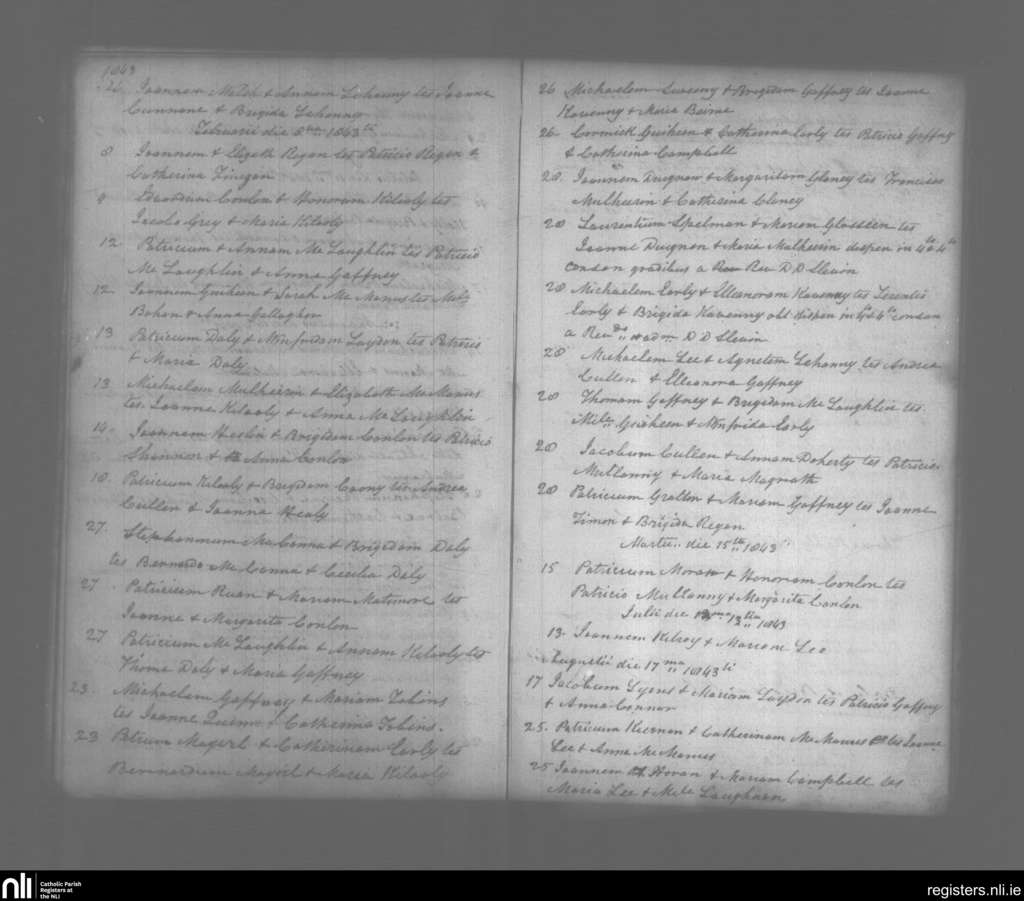 1843
26 Joannem Welsh & Annam Lehenny tes Joanne
Cunnane & Brigida Lehenny
Februarii die 8 1843
8 Joannem & Elizath Regan tes Patricio Regan &
Catherina Finegan
9 Edwardum Conlon & Honoram Kilooly tes
Jacobo Grey & Maria Kilooly
12 Patricium & Annam Mc Laughlin tes Patricio
Mc Laughlin & Anna Gaffney
12 Joannem Guiheen & Sarah Mc Manus tes
Bohan & Anna Gallagher
13 Patricium Daly & Winfridam Laydon tes Patricio
& Maria Daly
13 Michaelem Mulheirin & Elizabeth McManus
tes Joanne Kilooly & Anna Mc Laughlin
14 Joannem Heslin & Brigidam Conlon tes Patricio
Shannon & Anna Conlon
18 Patricium Kilooly & Brigidam Coony tes Andrea
Cullen & Joanna Healy
27. Stephanmum McCanna & Brigidam Daly
tes Bernardo McCanna & Cecilia Daly
27 Patricium Ruan & Mariam Matimore tes
Joanne & Margarita Conlon
27 Patricium Mc Laughlin & Annam Kilooly tes
Thoma Daly & Maria Gaffney
23 Michaelem Gaffney & Mariam Tobins
tes Joanne Quinn & Catherina Tobins.
23 Petrum Magirl & Catherinam Early tes
Bernnardum Magirl & Maria Kilooly
26 Michaelem Sweeny & Brigidam Gaffney tes Joanne
Kaveny & Maria Beirne
26 Cormick Guiheen & Catharina Early tes Patricio Gaffney
& Catharina Campbell
28 Joannem Duignan & Margaritam Glaney tes Francisco
Mulheeron & Catherina Claney
28 Laurentium Spelman & Mariam tes
Joanne Duignan & Maria Mulheirin dispen in 4to & 4to
consan gradibus a Rev D D Slevin
28 Michaelem Early & Elleanoram Kaveny tes Terentio
Early & Brigida Kavenny obt dispen in 4to & 4to consan
a Revdo adm D D Slevin
28 Michaelem Lee & Agnetem Lehanny tes Andrea
Cullen & Elleanora Gaffney
28 Thomam Gaffney & Brigidam Mc Laughlin tes
Mile Guiheen & Winfrida Early
28 Jacobum Cullen & Annam Doherty tes Patricio
Mullanny & Maria Magrath
28 Patricium Grallon & Mariam Gaffney tes Joanne
Timon & Brigida Regan
Martii die 15th 1843
15 Patricium Moran & Honoram Conlon tes
Patricio Mullanny & Margarita Conlon
Julii die 13tia 1843
13. Joannem Kilroy & Mariam Lee
Augustii die 17ma 1843ti
17 Jacobum Lyons & Mariam Laydon tes Patricio Gaffney
& Anna Connor
25. Patricium Kiernan & Catherinam McManus tes Joanne
Lee & Anna McManus
25 Joannem Horan & Mariam Campbell tes
Maria Lee & Mile Laughnan
nli
Catholic Parish
Registers at
the NLI
registers.nli.ie